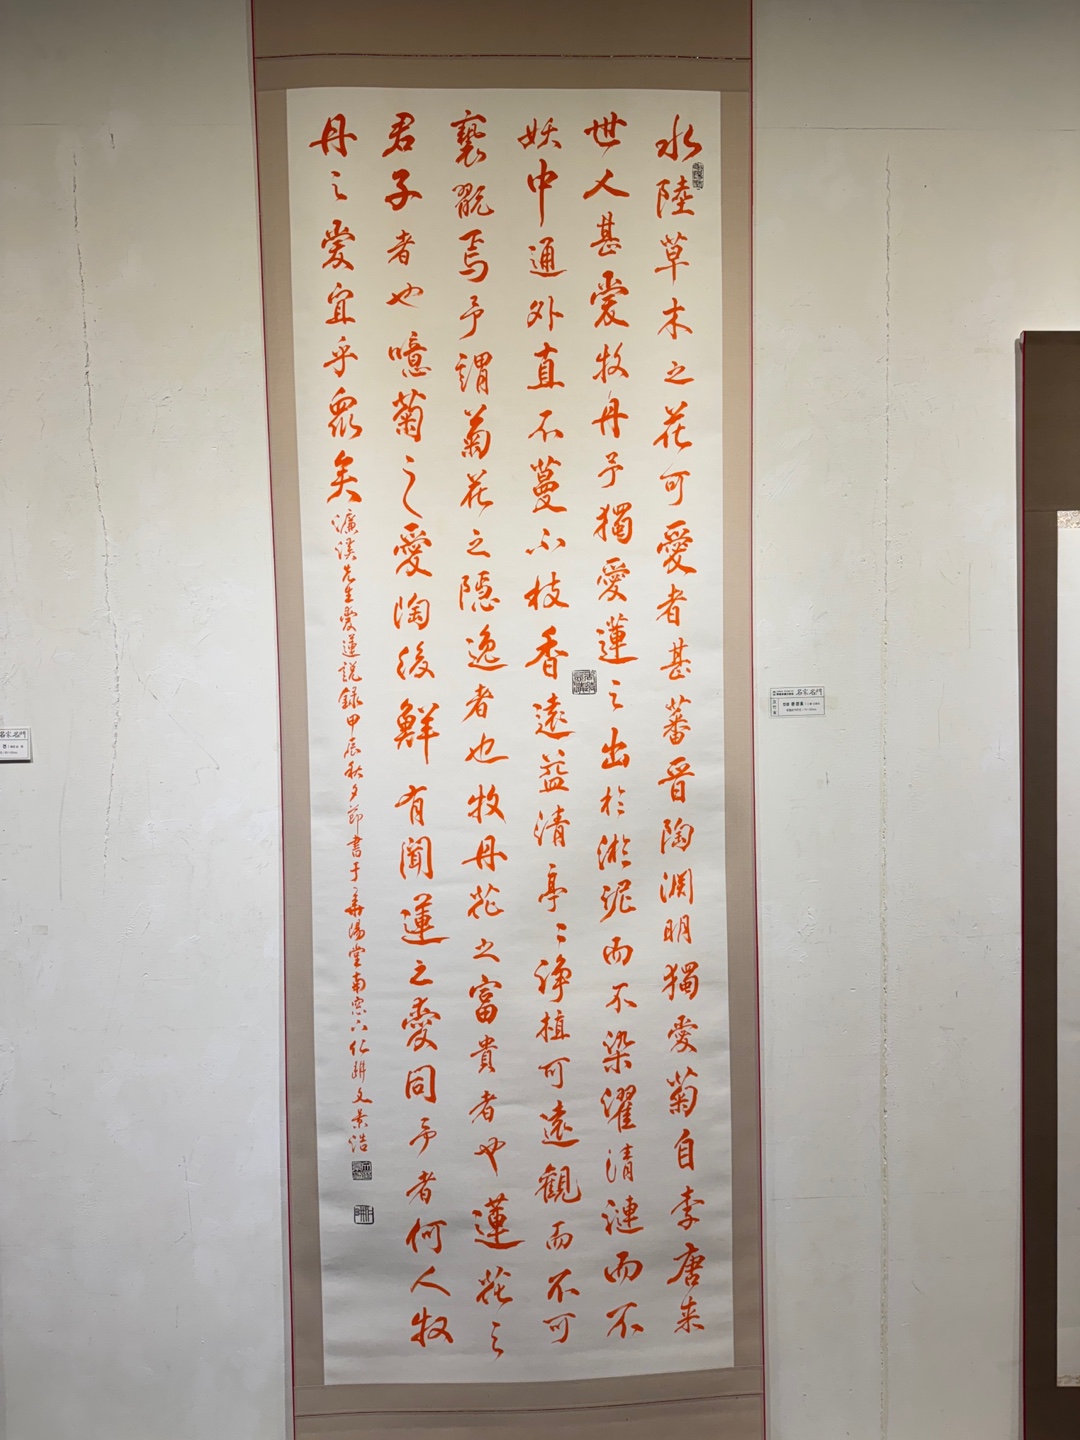 水陸草木之花可愛者甚蕃晋陶渊明獨愛菊自李唐来
世人甚愛牧丹予獨愛蓮之出於淤泥而不染濯清漣而不
妖中通外直不蔓不枝香遠益清亭〻諍植可遠觀而不可
褻翫焉予謂菊花之隱逸者也牧丹花之富貴者也蓮花之
君子者也噫菊之愛陶後鮮有聞蓮之愛同予者何人牧
丹之愛宜乎衆矣
濂溪先生愛蓮說録甲辰秋夕節書于華陽堂南窓下仁耕文景浩
名家名門
名家名門